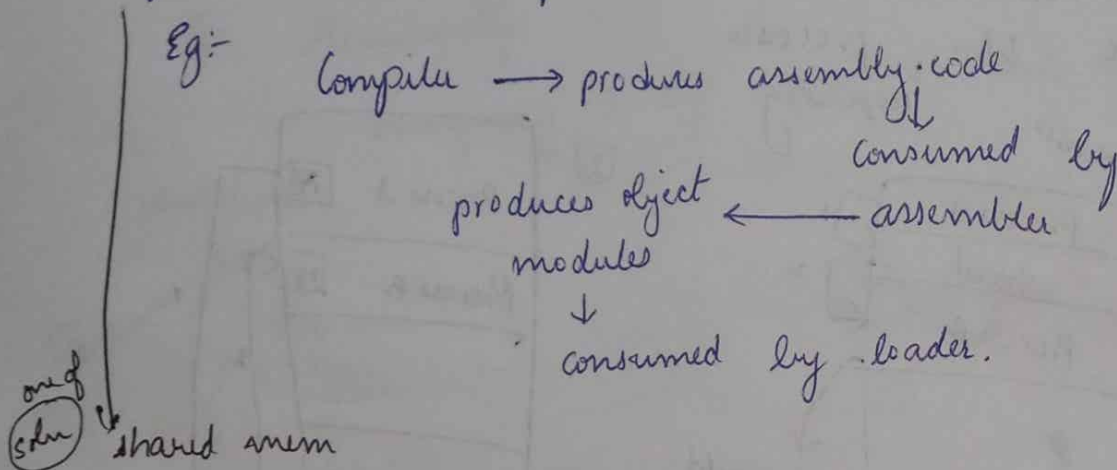 Eg:-
Compiler → produces assembly code
↓
consumed by
produces object ← assembler
modules
↓
consumed by loader.
one of
soln shared mem